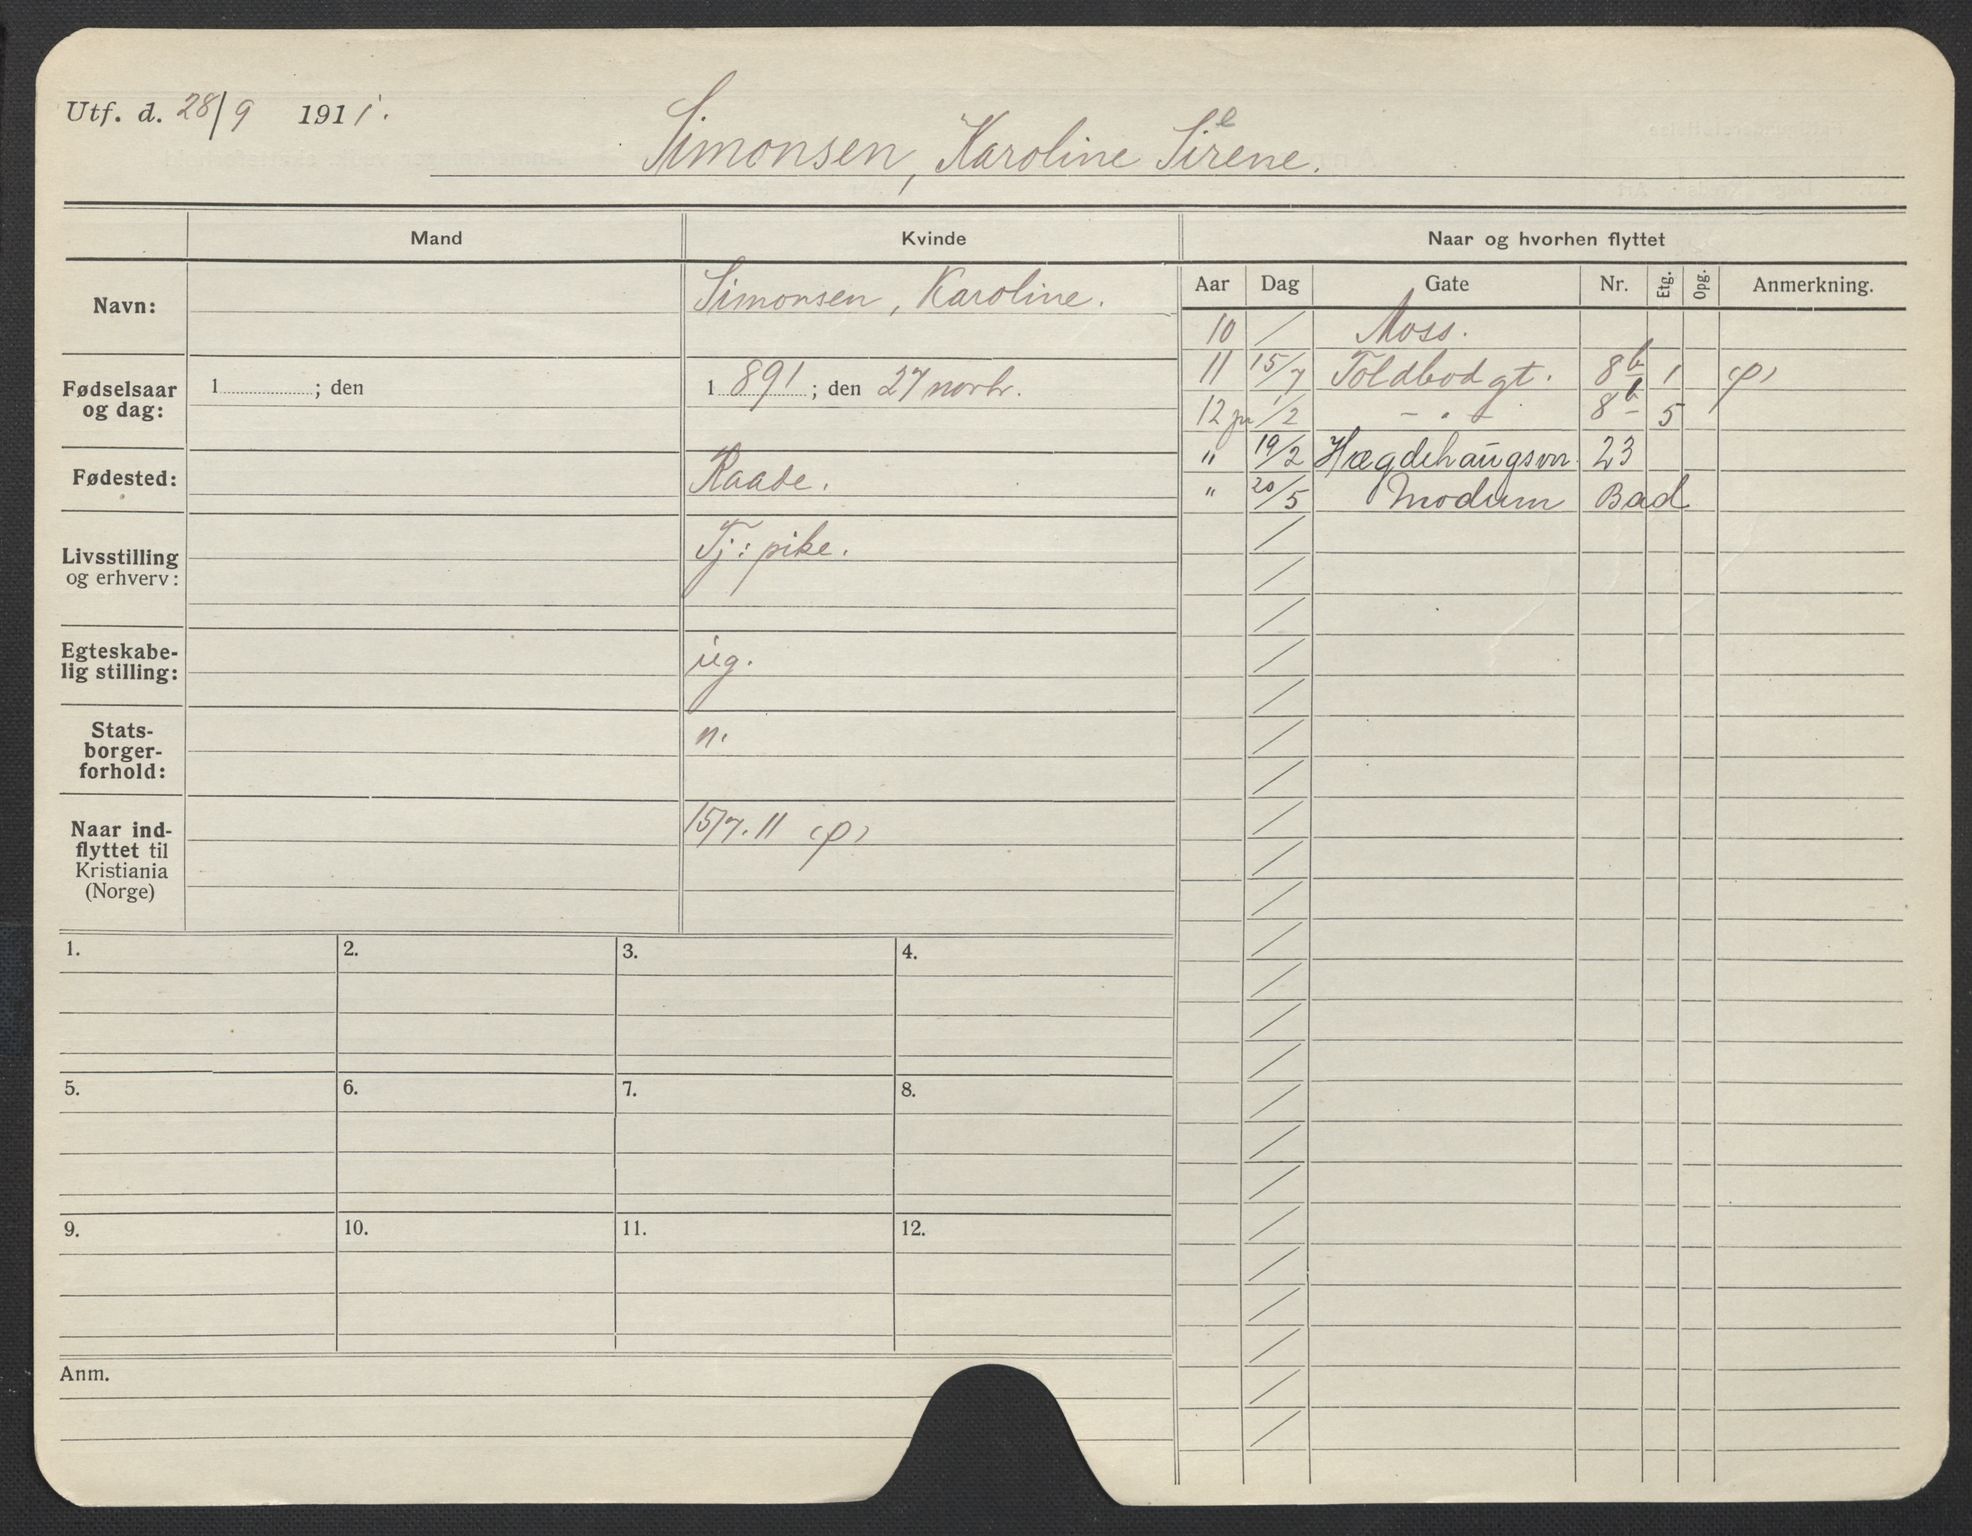 Utf. d. 28/9 1911.
e
Simonsen, Karoline Sirene.
Mand
Kvinde
Naar og hvorhen flyttet
Navn:
Simonsen, Karoline.
Fødselsaar og dag:
1 ; den
1 891 ; den 27 novbr.
Fødested:
Raade.
Livsstilling og erhverv:
Tj: pike.
Egteskabe-
lig stilling:
ug.
Stats-
borger-
forhold:
n.
Naar ind-
flyttet til
Kristiania
(Norge)
15/7. 11 (p)
Aar Dag Gate Nr. Etg. Opg. Anmerkning.
10 / Moss.
11 15/7 Toldbodgt. 8b 1 (p)
12 1/2 - " - 8b 5
" 19/2 Hægdehaugsvn. 23
" 20/5 Modum Bad
1. 2. 3. 4.
5. 6. 7. 8.
9. 10. 11. 12.
Anm.